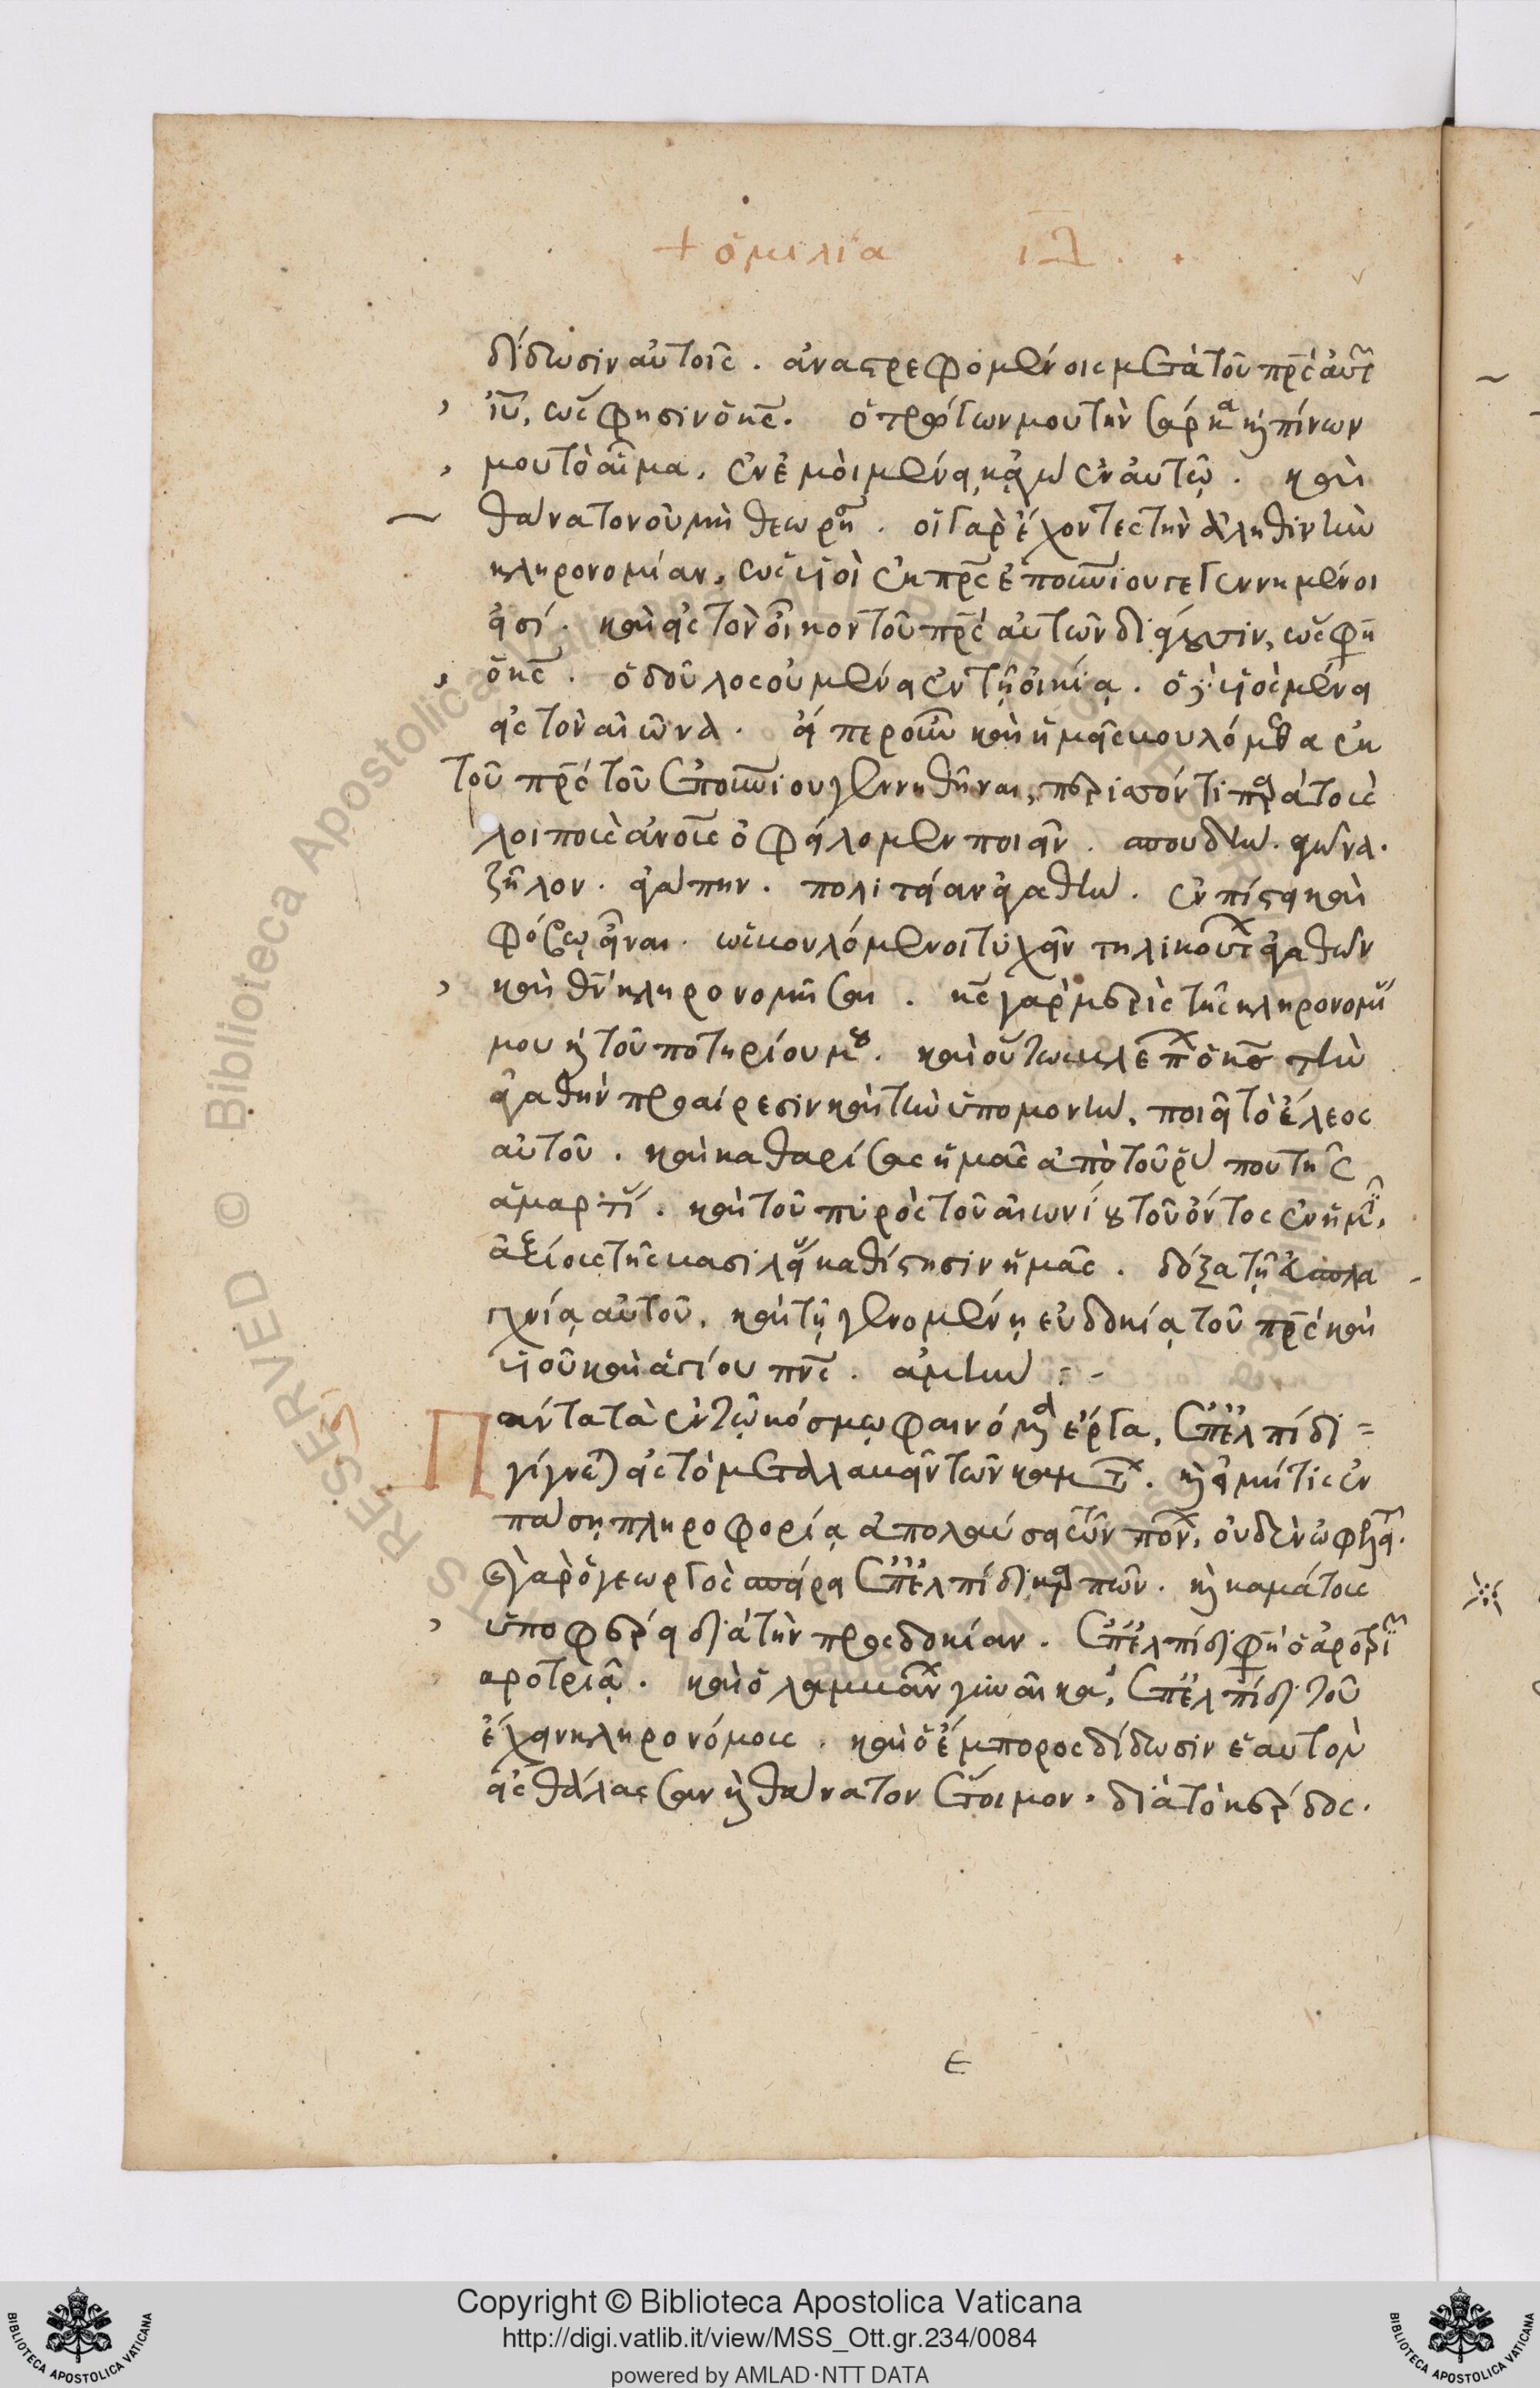 + ὁμιλία ΙΔ . +
δίδωσιν αὐτοῖς . ἀναστρεφομένοις μετὰ τοῦ πρς αὐτ
ιυ, ὡς φησὶν ὁ κς . ὁ τρώγων μου τὴν σάρκα κ πίνων
μου τὸ αἷμα, ἐν ἐμοὶ μένει, κἀγὼ ἐν αὐτῷ . καὶ
θάνατον οὐ μὴ θεωρη . οἱ γὰρ ἔχοντες τὴν ἀληθινὴν
κληρονομίαν, ὡς υἱοὶ ἐκ πρς ἐπουνίου γεγεννημένοι
εἰσί . καὶ εἰς τὸν οἶκον τοῦ πρς αὐτῶν διάγουσιν, ὡς φη
ὁ κς . ὁ δοῦλος οὐ μένει ἐν τῇ οἰκίᾳ . ὁ δὲ υἱὸς μένει
εἰς τὸν αἰῶνα . εἴπερ οὖν καὶ ἡμεῖς βουλόμεθα ἐκ
τοῦ πρς τοῦ ἐπουνίου γεννηθῆναι, περισσόν τι παρὰ τοὺς
λοιποὺς ἀνους ὀφείλομεν ποιεῖν . σπουδήν . ἀγῶνα .
ζῆλον . ἀγάπην . πολιτείαν ἀγαθήν . ἐν πίστει καὶ
φόβῳ εἶναι . ὡς βουλόμενοι τυχεῖν τηλικουτ ἀγαθῶν
καὶ θν κληρονομῆσαι . κς γὰρ μερὶς τῆς κληρονομι
μου κ τοῦ ποτηρίου μου . καὶ οὕτω βλεπ ὁ κς τὴν
ἀγαθὴν προαίρεσιν καὶ τὴν ὑπομονήν, ποιεῖ τὸ ἔλεος
αὐτοῦ . καὶ καθαρίσας ἡμᾶς ἀπὸ τοῦ ῥύπου τῆς
ἁμαρτι . καὶ τοῦ πυρὸς τοῦ αἰωνίου τοῦ ὄντος ἐν ἡμι,
ἀξίους τῆς βασιλεί καθίστησιν ἡμᾶς . δόξα τῇ εὐσπλα
γχνίᾳ αὐτοῦ, καὶ τῇ γενομένῃ εὐδοκίᾳ τοῦ πρς καὶ
υἱοῦ καὶ ἁγίου πνς . ἀμήν : -
Πάντα τὰ ἐν τῷ κόσμῳ φαινόμενα ἔργα, ἐπ ἐλπίδι
γίγνεται εἰς τὸ μεταλαβεῖν τῶν καματ . κ εἰ μή τις ἐν
πάσῃ πληροφορίᾳ ἀπολαύσει τῶν πον, οὐδὲν ὠφελεῖται .
κ γὰρ ὁ γεωργὸς σπείρει ἐπ ἐλπίδι καρπῶν . κ καμάτους
ὑποφέρει διὰ τὴν προσδοκίαν . ἐπ ἐλπίδι φη ὁ ἀροτρι
αροτριᾶν . καὶ ὁ λαμβάν γυναῖκα, ἐπ ἐλπίδι τοῦ
ἔχειν κληρονόμους . καὶ ὁ ἔμπορος δίδωσιν ἑαυτὸν
εἰς θάλασσαν κ θάνατον ἕτοιμον . διὰ τὸ κέρδος .
ε
BIBLIOTECA APOSTOLICA VATICANA
Copyright © Biblioteca Apostolica Vaticana
http://digi.vatlib.it/view/MSS_Ott.gr.234/0084
powered by AMLAD·NTT DATA
BIBLIOTECA APOSTOLICA VATICANA